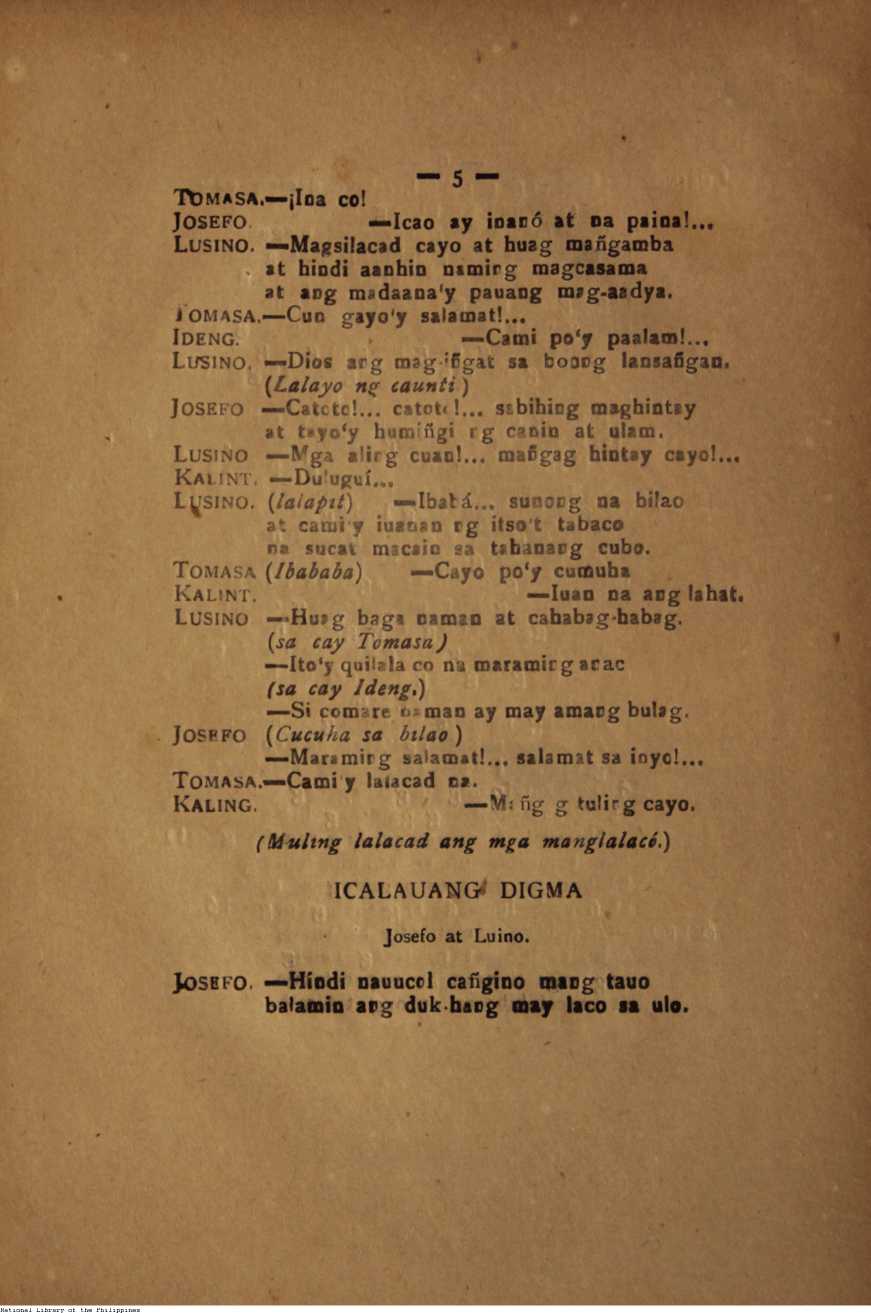 — 5 —
TOMASA.—¡Ina co!
JOSEFO. —Icao ay inanó at na paina!...
LUSINO. —Magsilacad cayo at huag mañgamba
at hindi aanhin naming magcasama
at ang madaana'y pauang mag-aadya.
TOMASA.—Cun gayo'y salamat!...
IDENG. —Cami po'y paalam!...
LUSINO. —Dios ang mag-iñgat sa boong lansañgan.
(Lalayo ng caunti)
JOSEFO —Catoto!... catoto!... sabihing maghintay
at tayo'y humiñgi ng canin at ulam.
LUSINO —Mga aling cuan!... mañgag hintay cayo!...
KALINT. —Duluguí...
LUSINO. (lalapit) —Ibabá... sunong na bilao
at cami'y iuanan ng itso't tabaco
na sucat macain sa tahanang cubo.
TOMASA (Ibababa) —Cayo po'y cumuha
KALINT. —Iuan na ang lahat.
LUSINO —Huag baga naman at cahabag-habag.
(sa cay Tomasa)
—Ito'y quilala co na maraming anac
(sa cay Ideng.)
—Si comare naman ay may amang bulag.
JOSEFO (Cucuha sa bilao)
—Maraming salamat!... salamat sa inyo!...
TOMASA.—Cami'y lalacad na.
KALING. — tuling cayo.
(Muling lalacad ang mga manglalacó.)
ICALAUANG DIGMA
Josefo at Luino.
JOSEFO. —Hindi nauucol cañgino mang tauo
balamin ang duk-hang may laco sa ulo.
National Library of the Philippines